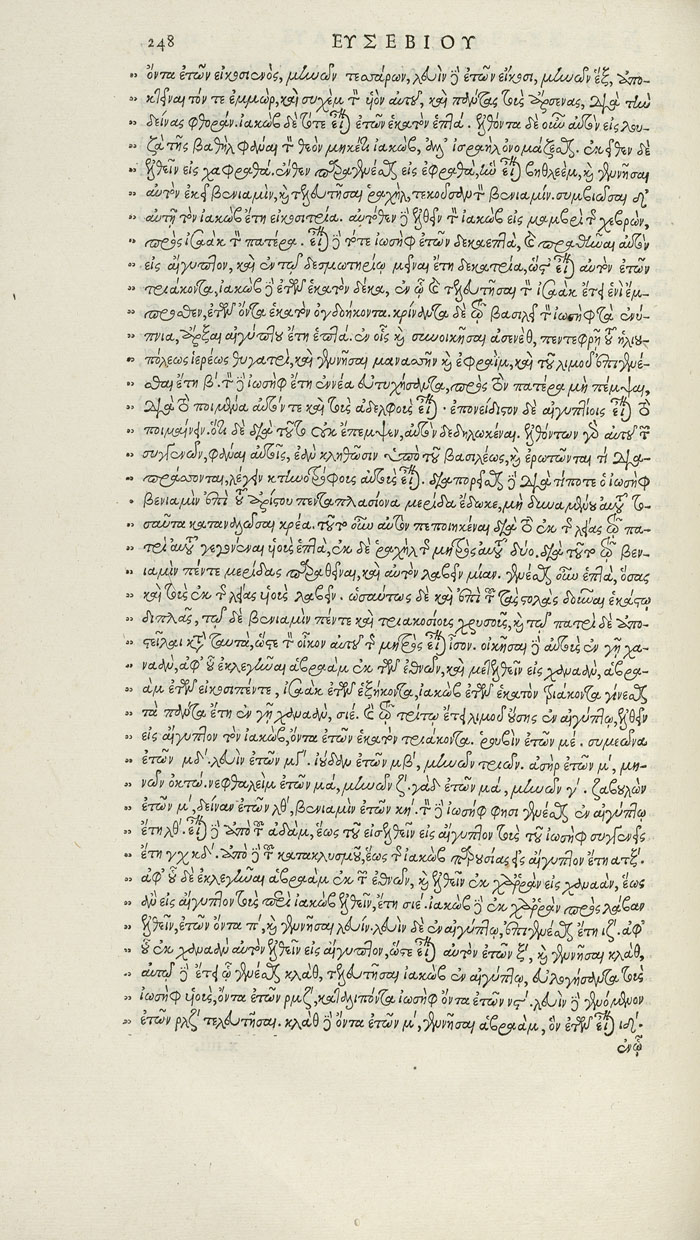 248 ΕΥΣΕΒΙΟΥ
„ ὄντα ἐτῶν εἰκοσιενὸς, μηνῶν τεσσάρων, λευὶν δὲ ἐτῶν εἴκοσι, μηνῶν ἓξ, ἀπο-
„ κτεῖναι τόν τε ἐμμὼρ, καὶ συχὲμ τὸν ὑὸν αὐτοῦ, καὶ πάντας τοὺς ἄρσενας, διὰ τὴν
„ δείνας φθοράν. ἰακὼβ δὲ τότε εἶναι ἐτῶν ἑκατὸν ἑπτά. ἐλθόντα δὲ οὖν αὐτὸν εἰς λου-
„ ζὰ τῆς βαθὴλ φάναι τὸν θεὸν μηκέτι ἰακὼβ, ἀλλ' ἰσραὴλ ὀνομάζεσθαι. ἐκεῖθεν δὲ
„ ἐλθεῖν εἰς χαφραθά. ἔνθεν παραγενέσθαι εἰς ἐφραθὰ, ἣν εἶναι βηθλεὲμ, καὶ γεννῆσαι
„ αὐτὸν ἐκεῖ βενιαμὶν, καὶ τελευτῆσαι ῥαχὴλ, τεκοῦσαν τὸν βενιαμίν. συμβιῶσαι δ'
„ αὐτῇ τὸν ἰακὼβ ἔτη εἰκοσιτρία. αὐτόθεν δὲ ἐλθεῖν τὸν ἰακὼβ εἰς μαμβρὶ τῆς χεβρὼν,
„ πρὸς ἰσαὰκ τὸν πατέρα. εἶναι δὲ τότε ἰωσὴφ ἐτῶν δεκαεπτὰ, καὶ πραθῆναι αὐτὸν
„ εἰς αἴγυπτον, καὶ ἐν τῷ δεσμωτηρίῳ μεῖναι ἔτη δεκατρία, ὥστ' εἶναι αὐτὸν ἐτῶν
„ τριάκοντα, ἰακὼβ δὲ ἐτῶν ἑκατὸν δέκα, ἐν ᾧ καὶ τελευτῆσαι τὸν ἰσαὰκ ἔτει ἑνὶ ἔμ-
„ προσθεν, ἐτῶν ὄντα ἑκατὸν ὀγδοήκοντα. κρίναντα δὲ τῷ βασιλεῖ τὸν ἰωσὴφ τὰ ἐνύ-
„ πνια, ἄρξαι αἰγύπτου ἔτη ἑπτά. ἐν οἷς καὶ συνοικῆσαι ἀσενὲθ, πεντεφρῆ τοῦ ἡλιου-
„ πόλεως ἱερέως θυγατρὶ, καὶ γεννῆσαι μανασσῆν καὶ ἐφραῒμ, καὶ τοῦ λιμοῦ ἐπιγενέ-
„ σθαι ἔτη β'. τὸν δὲ ἰωσὴφ ἔτη ἐννέα εὐτυχήσαντα, πρὸς τὸν πατέρα μὴ πέμψαι,
„ διὰ τὸ ποιμένα αὐτόν τε καὶ τοὺς ἀδελφοὺς εἶναι· ἐπονείδιστον δὲ αἰγυπτίοις εἶναι τὸ
„ ποιμαίνειν. ὅτι δὲ διὰ τοῦτο οὐκ ἔπεμψεν, αὐτὸν δεδηλωκέναι. ἐλθόντων γὰρ αὐτοῦ τῶν
„ συγγενῶν, φάναι αὐτοῖς, ἐὰν κληθῶσιν ὑπὸ τοῦ βασιλέως, καὶ ἐρωτῶνται τί δια-
„ πράσσονται, λέγειν κτηνοτρόφους αὐτοὺς εἶναι. διαπορεῖσθαι δὲ διὰ τίποτε ὁ ἰωσὴφ
„ βενιαμὶν ἐπὶ τοῦ ἀρίστου πενταπλασίονα μερίδα ἔδωκε, μὴ δυναμένου αὐτοῦ το-
„ σαῦτα καταναλῶσαι κρέα. τοῦτο οὖν αὐτὸν πεποιηκέναι διὰ τὸ ἐκ τῆς λείας τῷ πα-
„ τρὶ αὐτοῦ γεγονέναι ὑιοὺς ἑπτὰ, ἐκ δὲ ῥαχὴλ τῆς μητρὸς αὐτοῦ δύο. διὰ τοῦτο τῷ βεν-
„ ιαμὶν πέντε μερίδας παραθεῖναι, καὶ αὐτὸν λαβεῖν μίαν. γενέσθαι οὖν ἑπτὰ, ὅσας
„ καὶ τοὺς ἐκ τῆς λείας ὑιοὺς λαβεῖν. ὡσαύτως δὲ καὶ ἐπὶ τοῦ τὰς στολὰς δοῦναι ἑκάστῳ
„ διπλᾶς, τῷ δὲ βενιαμὶν πέντε καὶ τριακοσίους χρυσοῦς, καὶ τῷ πατρὶ δὲ ἀπο-
„ στεῖλαι κατὰ ταυτὰ, ὥστε τὸν οἶκον αὐτοῦ τῆς μητρὸς εἶναι ἴσον. οἰκῆσαι δὲ αὐτοὺς ἐν γῇ χα-
„ ναὰν, ἀφ' οὗ ἐκλεγῆναι ἁβραὰμ ἐκ τῶν ἐθνῶν, καὶ μετελθεῖν εἰς χαναὰν, ἁβρα-
„ ὰμ ἐτῶν εἰκοσιπέντε, ἰσαὰκ ἐτῶν ἑξήκοντα, ἰακὼβ ἐτῶν ἑκατὸν τριάκοντα γίνεσθαι
„ τὰ πάντα ἔτη ἐν γῇ χαναὰν, σιέ. καὶ τῷ τρίτῳ ἔτει λιμοῦ οὔσης ἐν αἰγύπτῳ, ἐλθεῖν
„ εἰς αἴγυπτον τὸν ἰακὼβ, ὄντα ἐτῶν ἑκατὸν τριάκοντα. ῥουβὶν ἐτῶν μέ. συμεῶνα
„ ἐτῶν μδ'. λευὶν ἐτῶν μγ'. ἰούδαν ἐτῶν μβ', μηνῶν τριῶν. ἀσὴρ ἐτῶν μ', μη-
„ νῶν ὀκτώ. νεφθαλεὶμ ἐτῶν μά, μηνῶν ζ'. γὰδ ἐτῶν μά, μηνῶν γ'. ζαβουλὼν
„ ἐτῶν μ', δείναν ἐτῶν λθ', βενιαμὶν ἐτῶν κη'. τὸν δὲ ἰωσὴφ φησὶ γενέσθαι ἐν αἰγύπτῳ
„ ἔτη λθ'. εἶναι δὲ ἀπὸ τοῦ ἀδὰμ, ἕως τοῦ εἰσελθεῖν εἰς αἴγυπτον τοὺς τοῦ ἰωσὴφ συγγενεῖς
„ ἔτη γχκδ'. ἀπὸ δὲ τοῦ κατακλυσμοῦ, ἕως τῆς ἰακὼβ παρουσίας εἰς αἴγυπτον ἔτη ατξ'.
„ ἀφ' οὗ δὲ ἐκλεγῆναι ἁβραὰμ ἐκ τῶν ἐθνῶν, καὶ ἐλθεῖν ἐκ χαῤῥὰν εἰς χαναὰν, ἕως
„ ἂν εἰς αἴγυπτον τοὺς περὶ ἰακὼβ ἐλθεῖν, ἔτη σιέ. ἰακὼβ δὲ ἐκ χαῤῥὰν πρὸς λάβαν
„ ἐλθεῖν, ἐτῶν ὄντα π', καὶ γεννῆσαι λευίν. λευὶν δὲ ἐν αἰγύπτῳ, ἐπιγενέσθαι ἔτη ιζ'. ἀφ'
„ οὗ ἐκ χαναὰν αὐτὸν ἐλθεῖν εἰς αἴγυπτον, ὥστε εἶναι αὐτὸν ἐτῶν ξ', καὶ γεννῆσαι κλὰθ,
„ αὐτῷ δὲ ἔτει ᾧ γενέσθαι κλὰθ, τελευτῆσαι ἰακὼβ ἐν αἰγύπτῳ, εὐλογήσαντα τοὺς
„ ἰωσὴφ ὑιοὺς, ὄντα ἐτῶν ρμζ', καταλιπόντα ἰωσὴφ ὄντα ἐτῶν νς'. λευὶν δὲ γενόμενον
„ ἐτῶν ρλζ' τελευτῆσαι. κλὰθ δὲ ὄντα ἐτῶν μ', γεννῆσαι ἁβραὰμ, ὃν ἐτῶν εἶναι ιδ'.
ἐν ᾧ